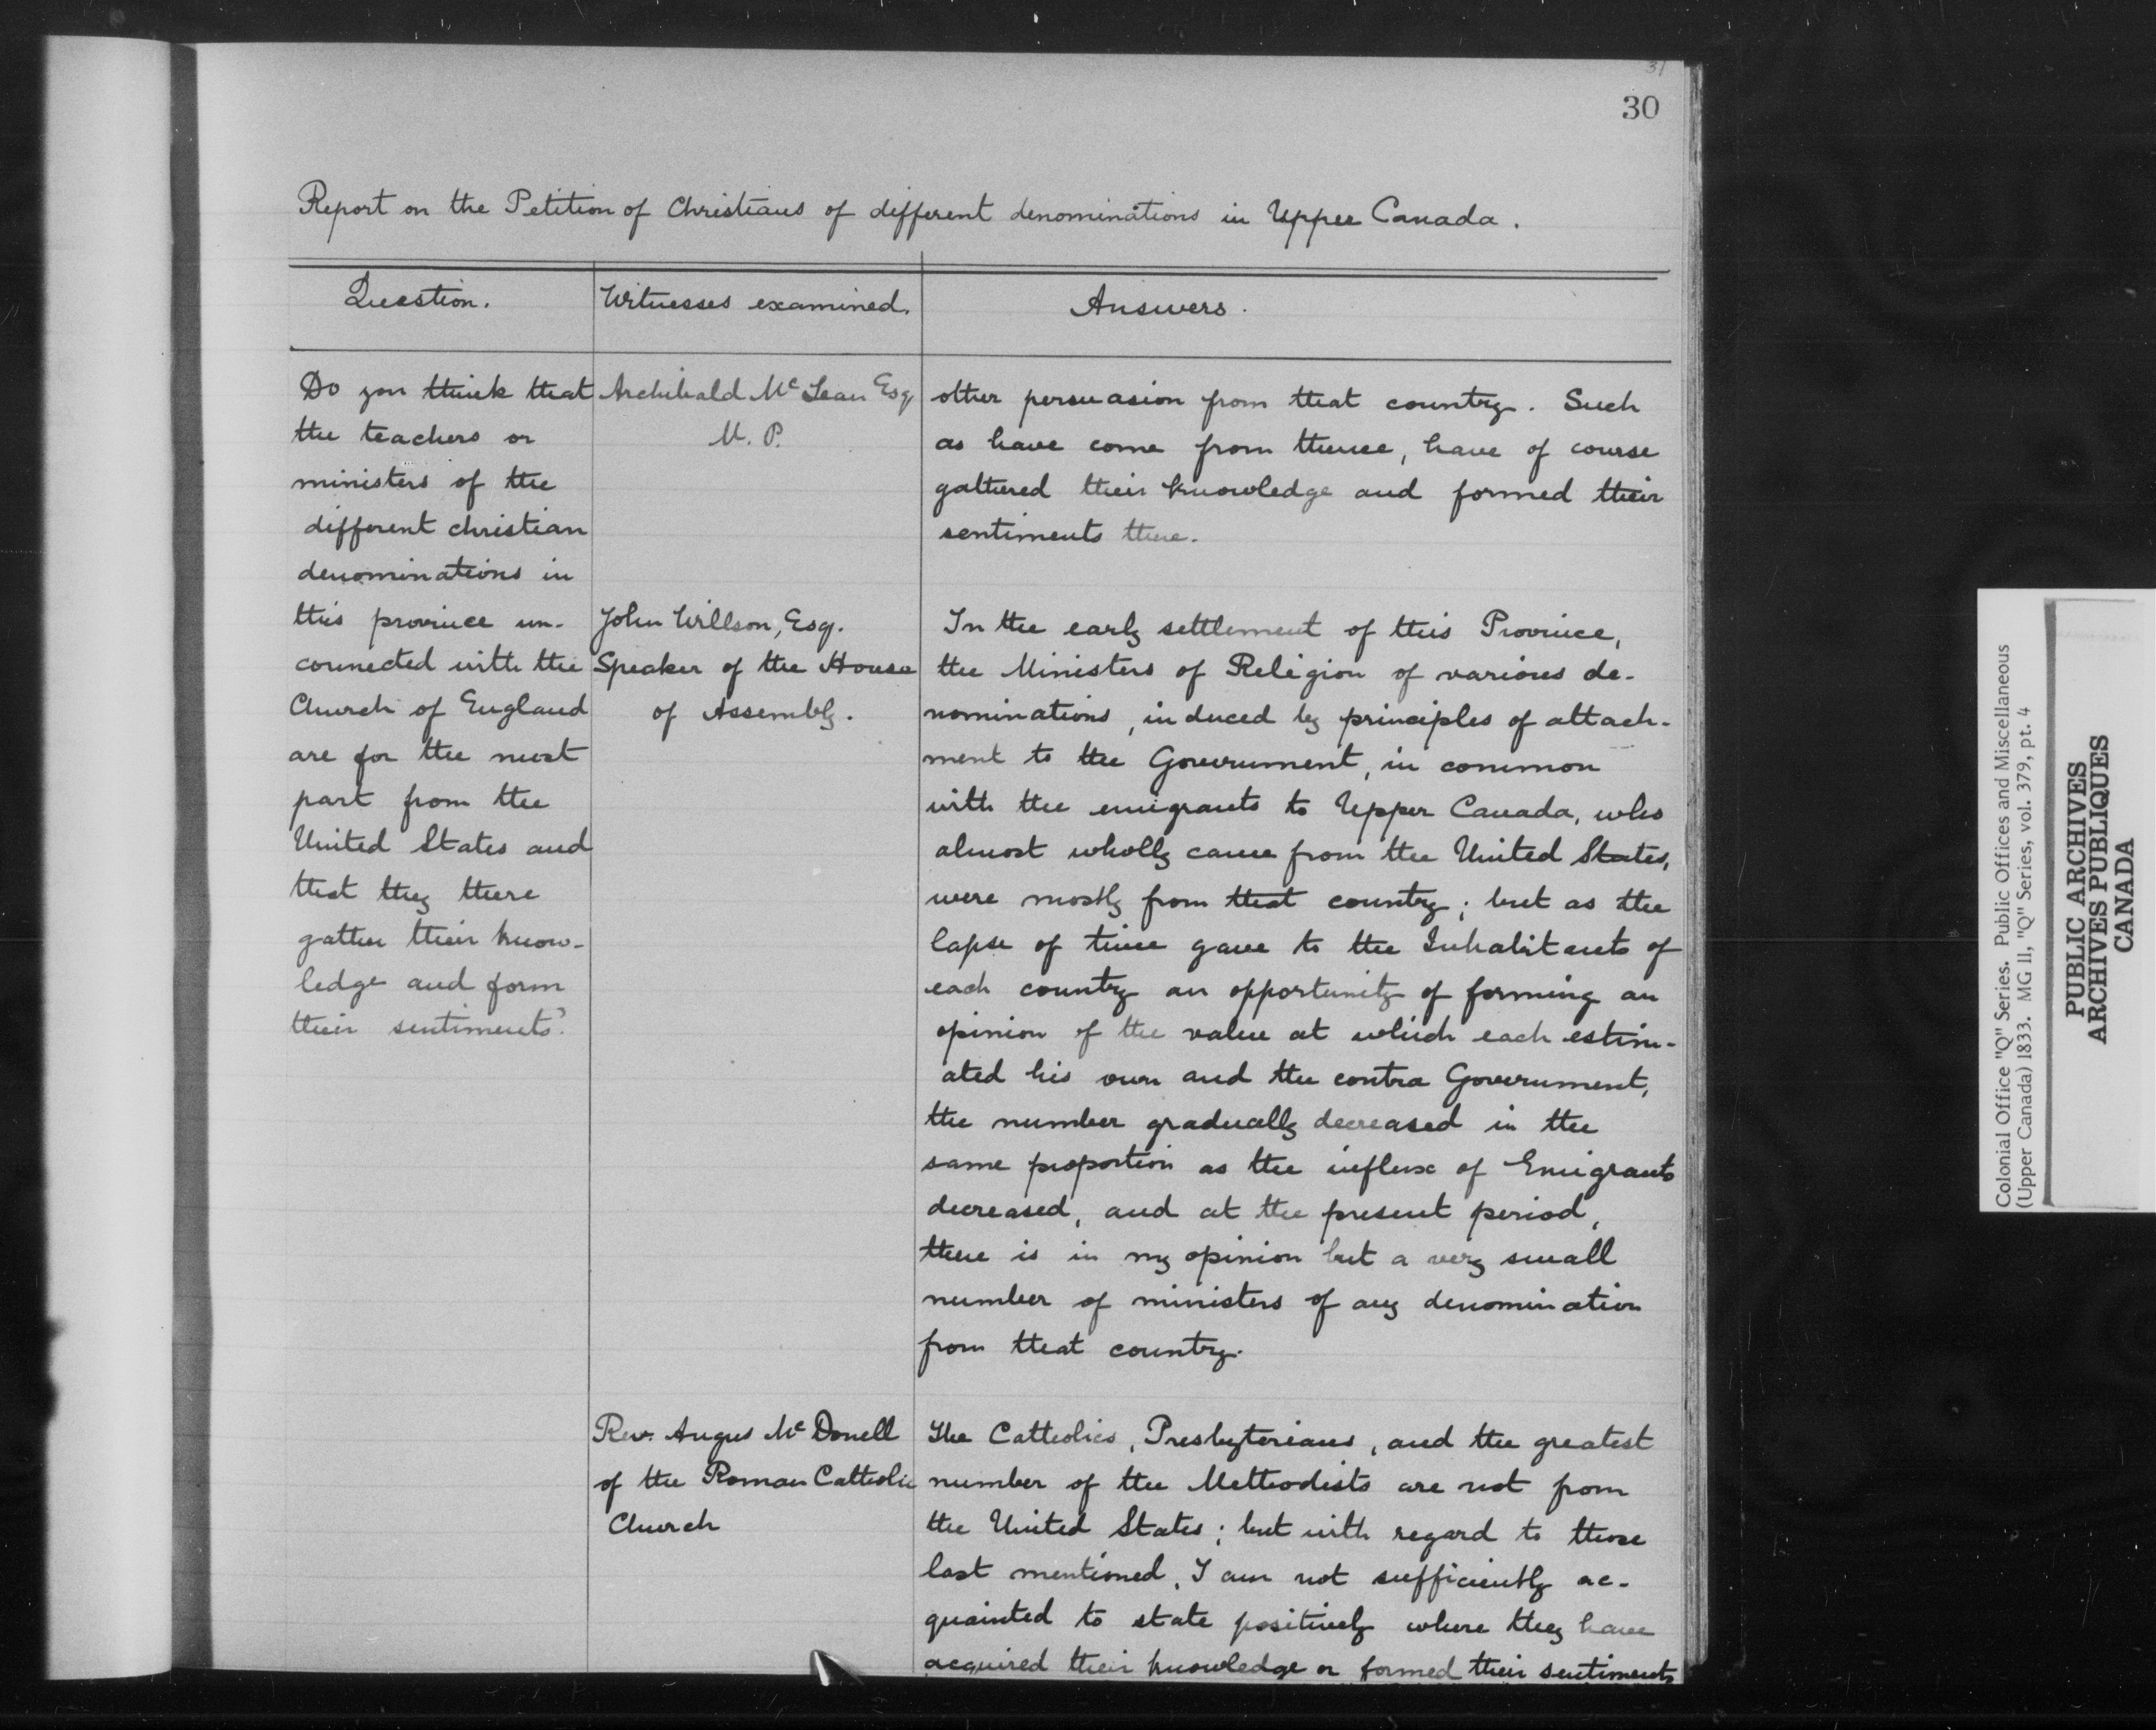 31
30
Report on the Petition of Christians of different denominations in Upper Canada.
Question.
Witnesses examined.
Answers.
Do you think that
the teachers or
ministers of the
different christian
denominations in
this province un-
connected with the
Church of England
are for the most
part from the
United States and
that they there
gather their know-
ledge and form
their sentiments?
Archibald McLean Esq
M. P.
other persuasion from that country. Such
as have come from thence, have of course
gathered their knowledge and formed their
sentiments there.
John Willson, Esq.
Speaker of the House
of Assembly.
In the early settlement of this Province,
the Ministers of Religion of various de-
nominations, induced by principles of attach-
ment to the Government, in common
with the emigrants to Upper Canada, who
almost wholly came from the United States,
were mostly from that country; but as the
lapse of time gave to the Inhabitants of
each country an opportunity of forming an
opinion of the value at which each estim-
ated his own and the contra Government,
the number gradually decreased in the
same proportion as the influx of Emigrants
decreased, and at the present period,
there is in my opinion but a very small
number of ministers of any denomination
from that country.
Rev. Angus McDonell
of the Roman Catholic
Church
The Catholics, Presbyterians, and the greatest
number of the Methodists are not from
the United States; but with regard to those
last mentioned, I am not sufficiently ac-
quainted to state positively where they have
acquired their knowledge or formed their sentiments
Colonial Office "Q" Series. Public Offices and Miscellaneous
(Upper Canada) 1833. MG 11, "Q" Series, vol. 379, pt. 4
PUBLIC ARCHIVES
ARCHIVES PUBLIQUES
CANADA